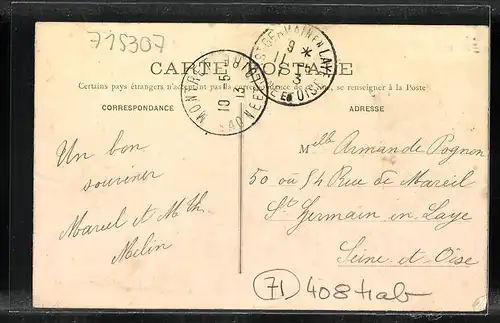 715307
CARTE POSTALE
Certains pays étrangers n'acceptant pas la correspondance de , se renseigner à la Poste
CORRESPONDANCE
ADRESSE
ST GERMAIN EN LAYE
9 *
11
13
SEINE ET OISE
10 5
13
Un bon
souvenir
Marcel et M Th.
Melin
Melle Armande Pognon
50 où 54 Rue de Mareil
St Germain en Laye
Seine-et-Oise
71 408 tab